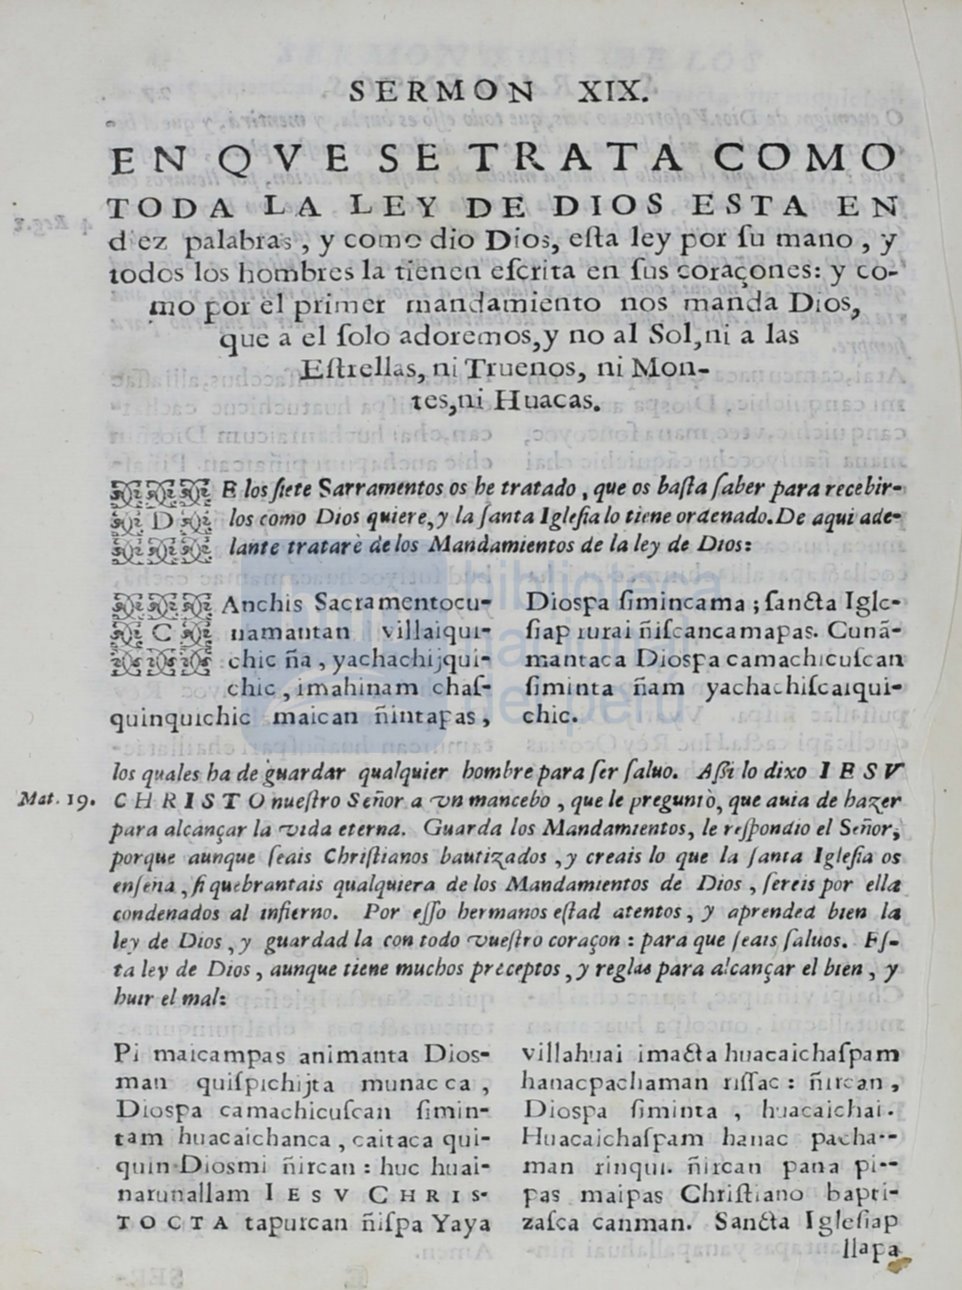 SERMON XIX.
EN QVE SE TRATA COMO
TODA LA LEY DE DIOS ESTA EN
diez palabras, y como dio Dios, eſta ley por ſu mano, y
todos los hombres la tienen eſcrita en ſus coraçones: y co-
mo por el primer mandamiento nos manda Dios,
que a el ſolo adoremos,y no al Sol,ni a las
Eſtrellas, ni Truenos, ni Mon-
tes,ni Huacas.
DE los ſiete Sarramentos os he tratado, que os baſta ſaber para recebir-
los como Dios quiere,y la ſanta Igleſia lo tiene ordenado.De aqui ade-
lante tratarè de los Mandamientos de la ley de Dios:
CAnchis Sacramentocu-
namantan villaiqui-
chic ña, yachachijqui-
chic, imahinam chaſ-
quinquichic maican ñintapas,
Diospa ſimincama; ſancta Igle-
ſiap iurai ñiſcancamapas. Cunã-
mantaca Diospa camachicuſcan
ſiminta ñam yachachiſcaiqui-
chic.
los quales ha de guardar qualquier hombre para ſer ſaluo. Aſſi lo dixo IESV
Mat. 19. CHRISTO nueſtro Señor a vn mancebo, que le preguntò, que auia de hazer
para alcançar la vida eterna. Guarda los Mandamientos, le reſpondio el Señor;
porque aunque ſeais Chriſtianos bautizados, y creais lo que la ſanta Igleſia os
enſeña, ſi quebrantais qualquiera de los Mandamientos de Dios, ſereis por ella
condenados al infierno. Por eſſo hermanos eſtad atentos, y aprended bien la
ley de Dios, y guardad la con todo vueſtro coraçon: para que ſeais ſaluos. Eſ-
ta ley de Dios, aunque tiene muchos preceptos, y reglas para alcançar el bien, y
huir el mal:
Pi maicampas animanta Dios-
man quiſpichijta munac ca,
Diospa camachicuſcan ſimin-
tam huacaichanca, caitaca qui-
quin Diosmi ñircan: huc huai-
narunallam IESV CHRIS-
TOCTA tapurcan ñiſpa Yaya
villahuai imacta huacaichaſpam
hanacpachaman riſſac: ñircan,
Diospa ſiminta, huacaichai.
Huacaichaſpam hanac pacha--
man rinqui. ñircan pana pi--
pas maipas Chriſtiano bapti-
zaſca canman. Sancta Igleſiap
llapa
biblioteca
nacional
del perú